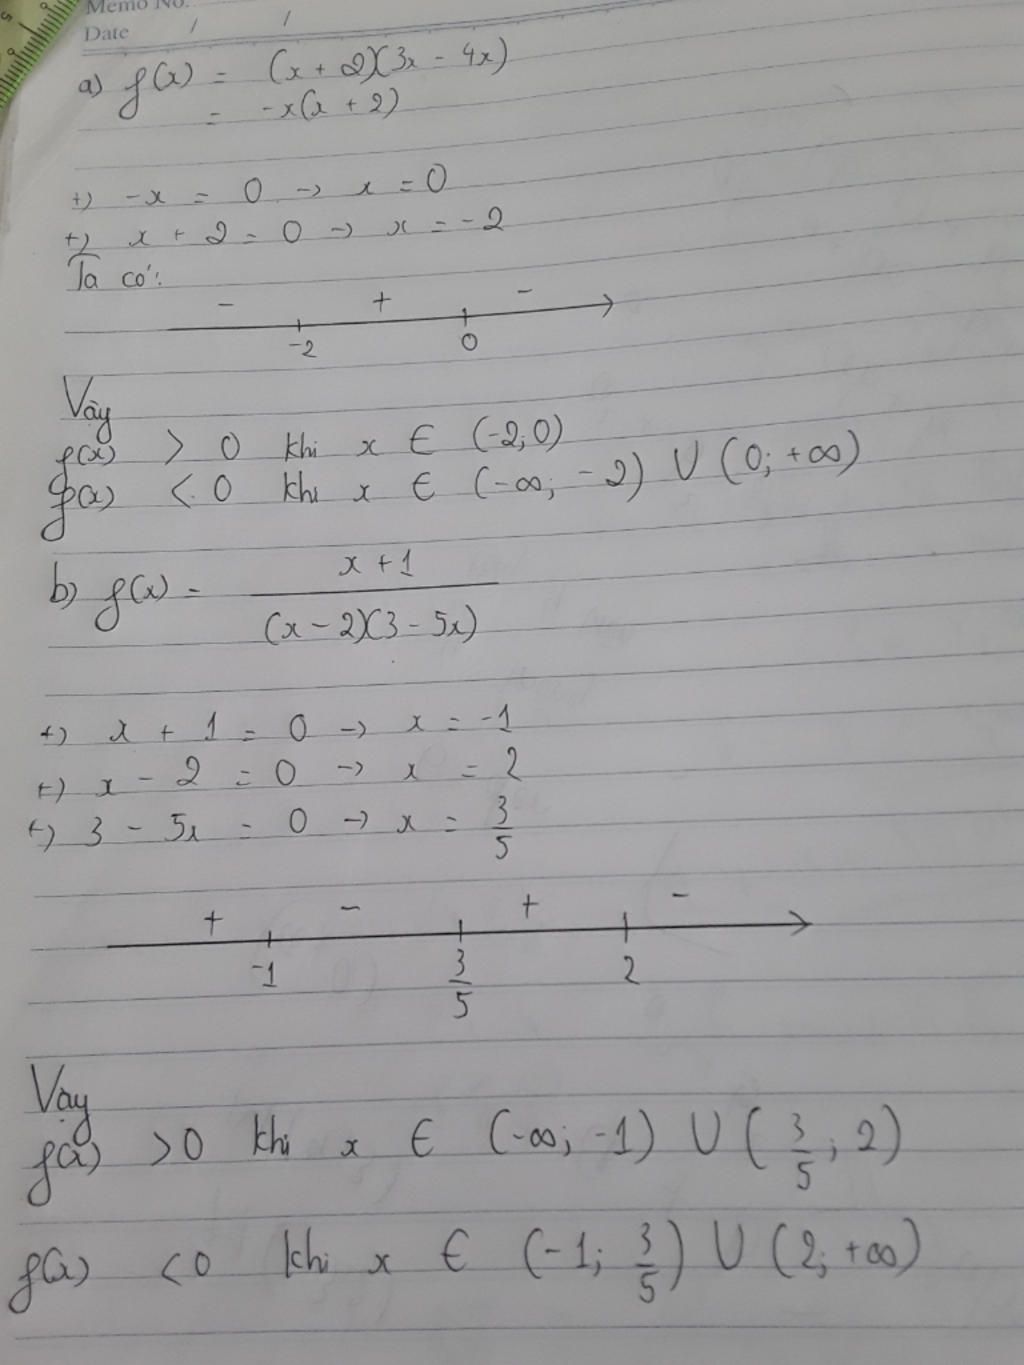 Memo No.
Date / /
a) f(x) = (x + 2)(3x - 4x)
= -x(x + 2)
+) -x = 0 -> x = 0
+) x + 2 = 0 -> x = -2
Ta có:
- + -
-2 0
Vậy
f(x) > 0 khi x ∈ (-2;0)
f(x) < 0 khi x ∈ (-∞; -2) ∪ (0; +∞)
b) f(x) = x + 1
(x - 2)(3 - 5x)
+) x + 1 = 0 -> x = -1
+) x - 2 = 0 -> x = 2
+) 3 - 5x = 0 -> x = 3/5
+ - + -
-1 3/5 2
Vay
f(x) > 0 khi x ∈ (-∞; -1) ∪ (3/5; 2)
f(x) < 0 khi x ∈ (-1; 3/5) ∪ (2; +∞)